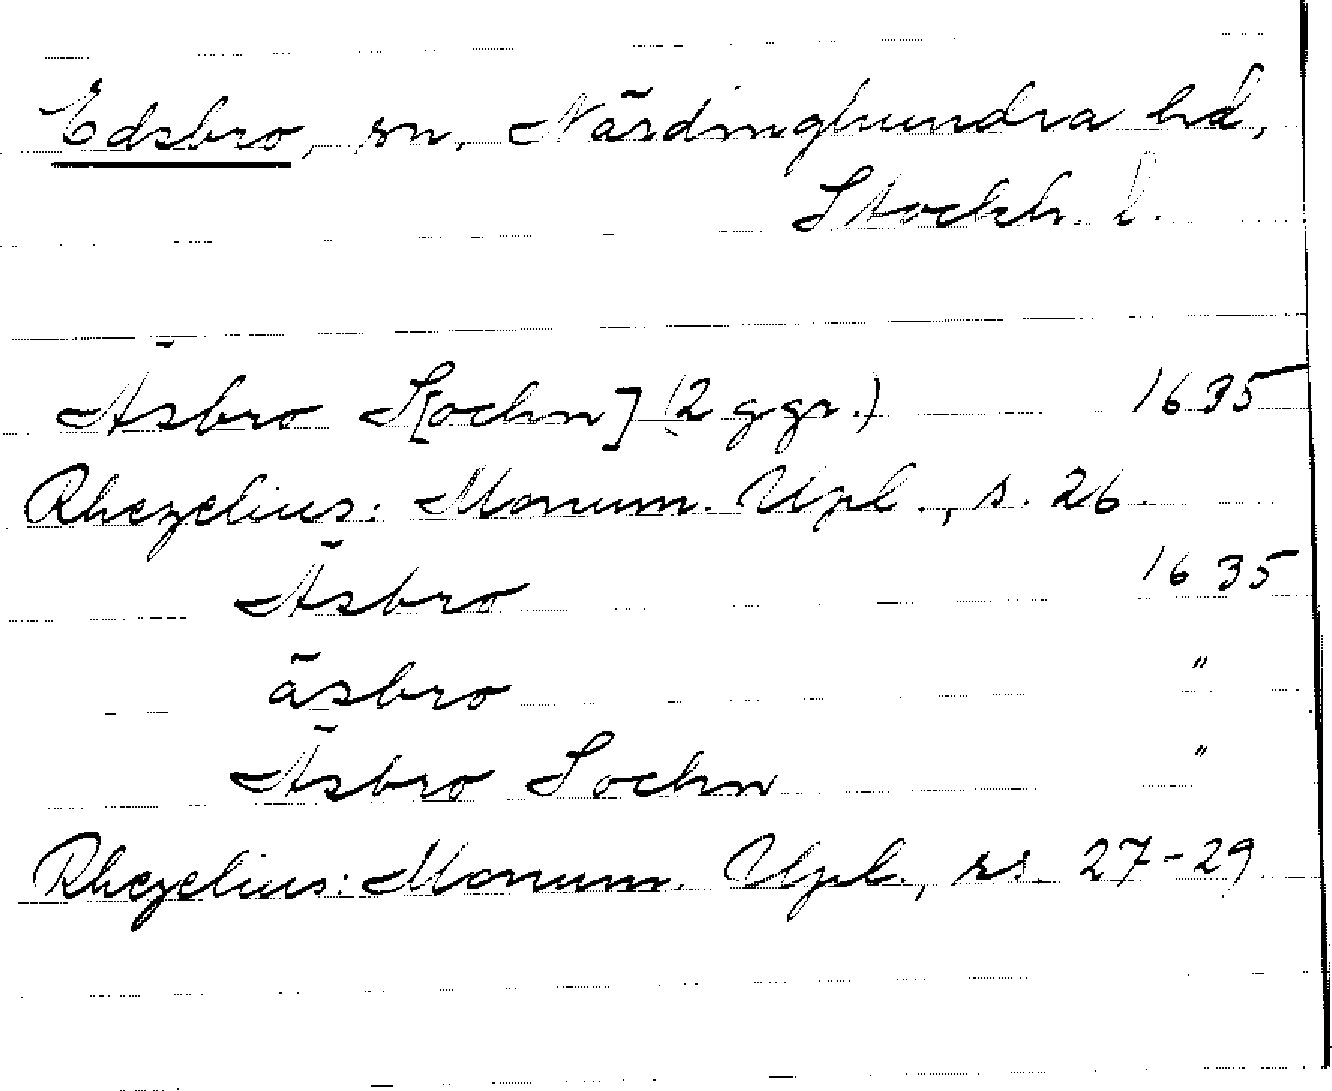 Edsbro, sn, Närdinghundra hd,
Stockh. l.
Äsbro S[ochn] (2 ggr.) 1635
Rhezelius: Monum. Upl., s. 26.
Äsbro 1635
äsbro "
Äsbro Sochn "
Rhezelius: Monum. Upl., ss. 27-29